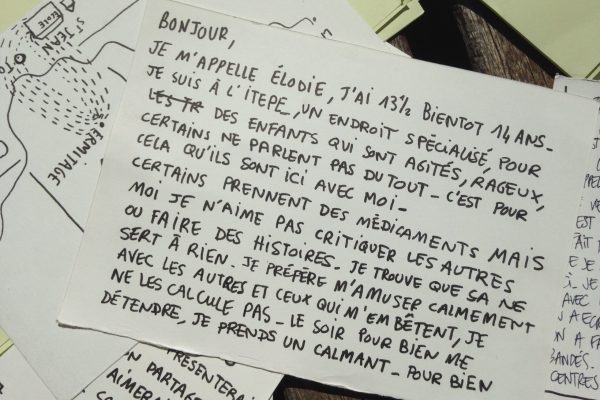 BONJOUR,
JE M'APPELLE ÉLODIE, J'AI 13½ BIENTOT 14 ANS-
JE SUIS À L'ITEPE-, UN ENDROIT SPÉCIALISÉ, POUR
LES TR DES ENFANTS QUI SONT AGITÉS, RAGEUX,
CERTAINS NE PARLENT PAS DU TOUT- C'EST POUR
CELA QU'ILS SONT ICI AVEC MOI-
CERTAINS PRENNENT DES MÉDICAMENTS MAIS
MOI JE N'AIME PAS CRITIQUER LES AUTRES
OU FAIRE DES HISTOIRES. JE TROUVE QUE SA NE
SERT À RIEN. JE PRÉFÈRE M'AMUSER CALMEMENT
AVEC LES AUTRES ET CEUX QUI M'EMBÊTENT, JE
NE LES CALCULE PAS- LE SOIR POUR BIEN ME
DÉTENDRE, JE PRENDS UN CALMANT- POUR BIEN
ÉCOLE
ST JEAN
ERMITAGE
PRÉSENTERAI
PARTAGE
AIMERA
EST
JE
AVEC
A ECR
A FA
BANDÉS.
CENTRES